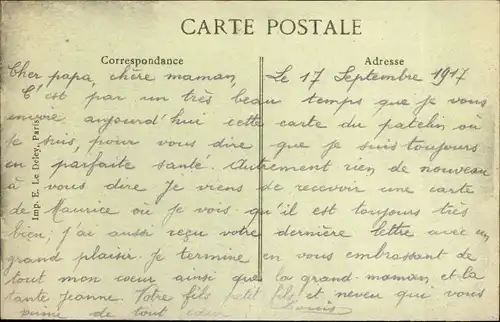 CARTE POSTALE
Correspondance
Adresse
Cher papa, chère maman, Le 17 Septembre 1917
C'est par un très beau temps que je vous
envoie aujourd'hui cette carte du patelin où
je suis, pour vous dire que je suis toujours
en parfaite santé. Autrement rien de nouveau
à vous dire Je viens de recevoir une carte
de Maurice où je vois qu'il est toujours très
bien; j'ai aussi reçu votre dernière lettre avec un
grand plaisir. Je termine en vous embrassant de
tout mon cœur ainsi que la grand-maman, et la
tante Jeanne. Votre fils petit fils et neveu qui vous
aime de tout cœur Louis
Imp. E. Le Deley, Paris